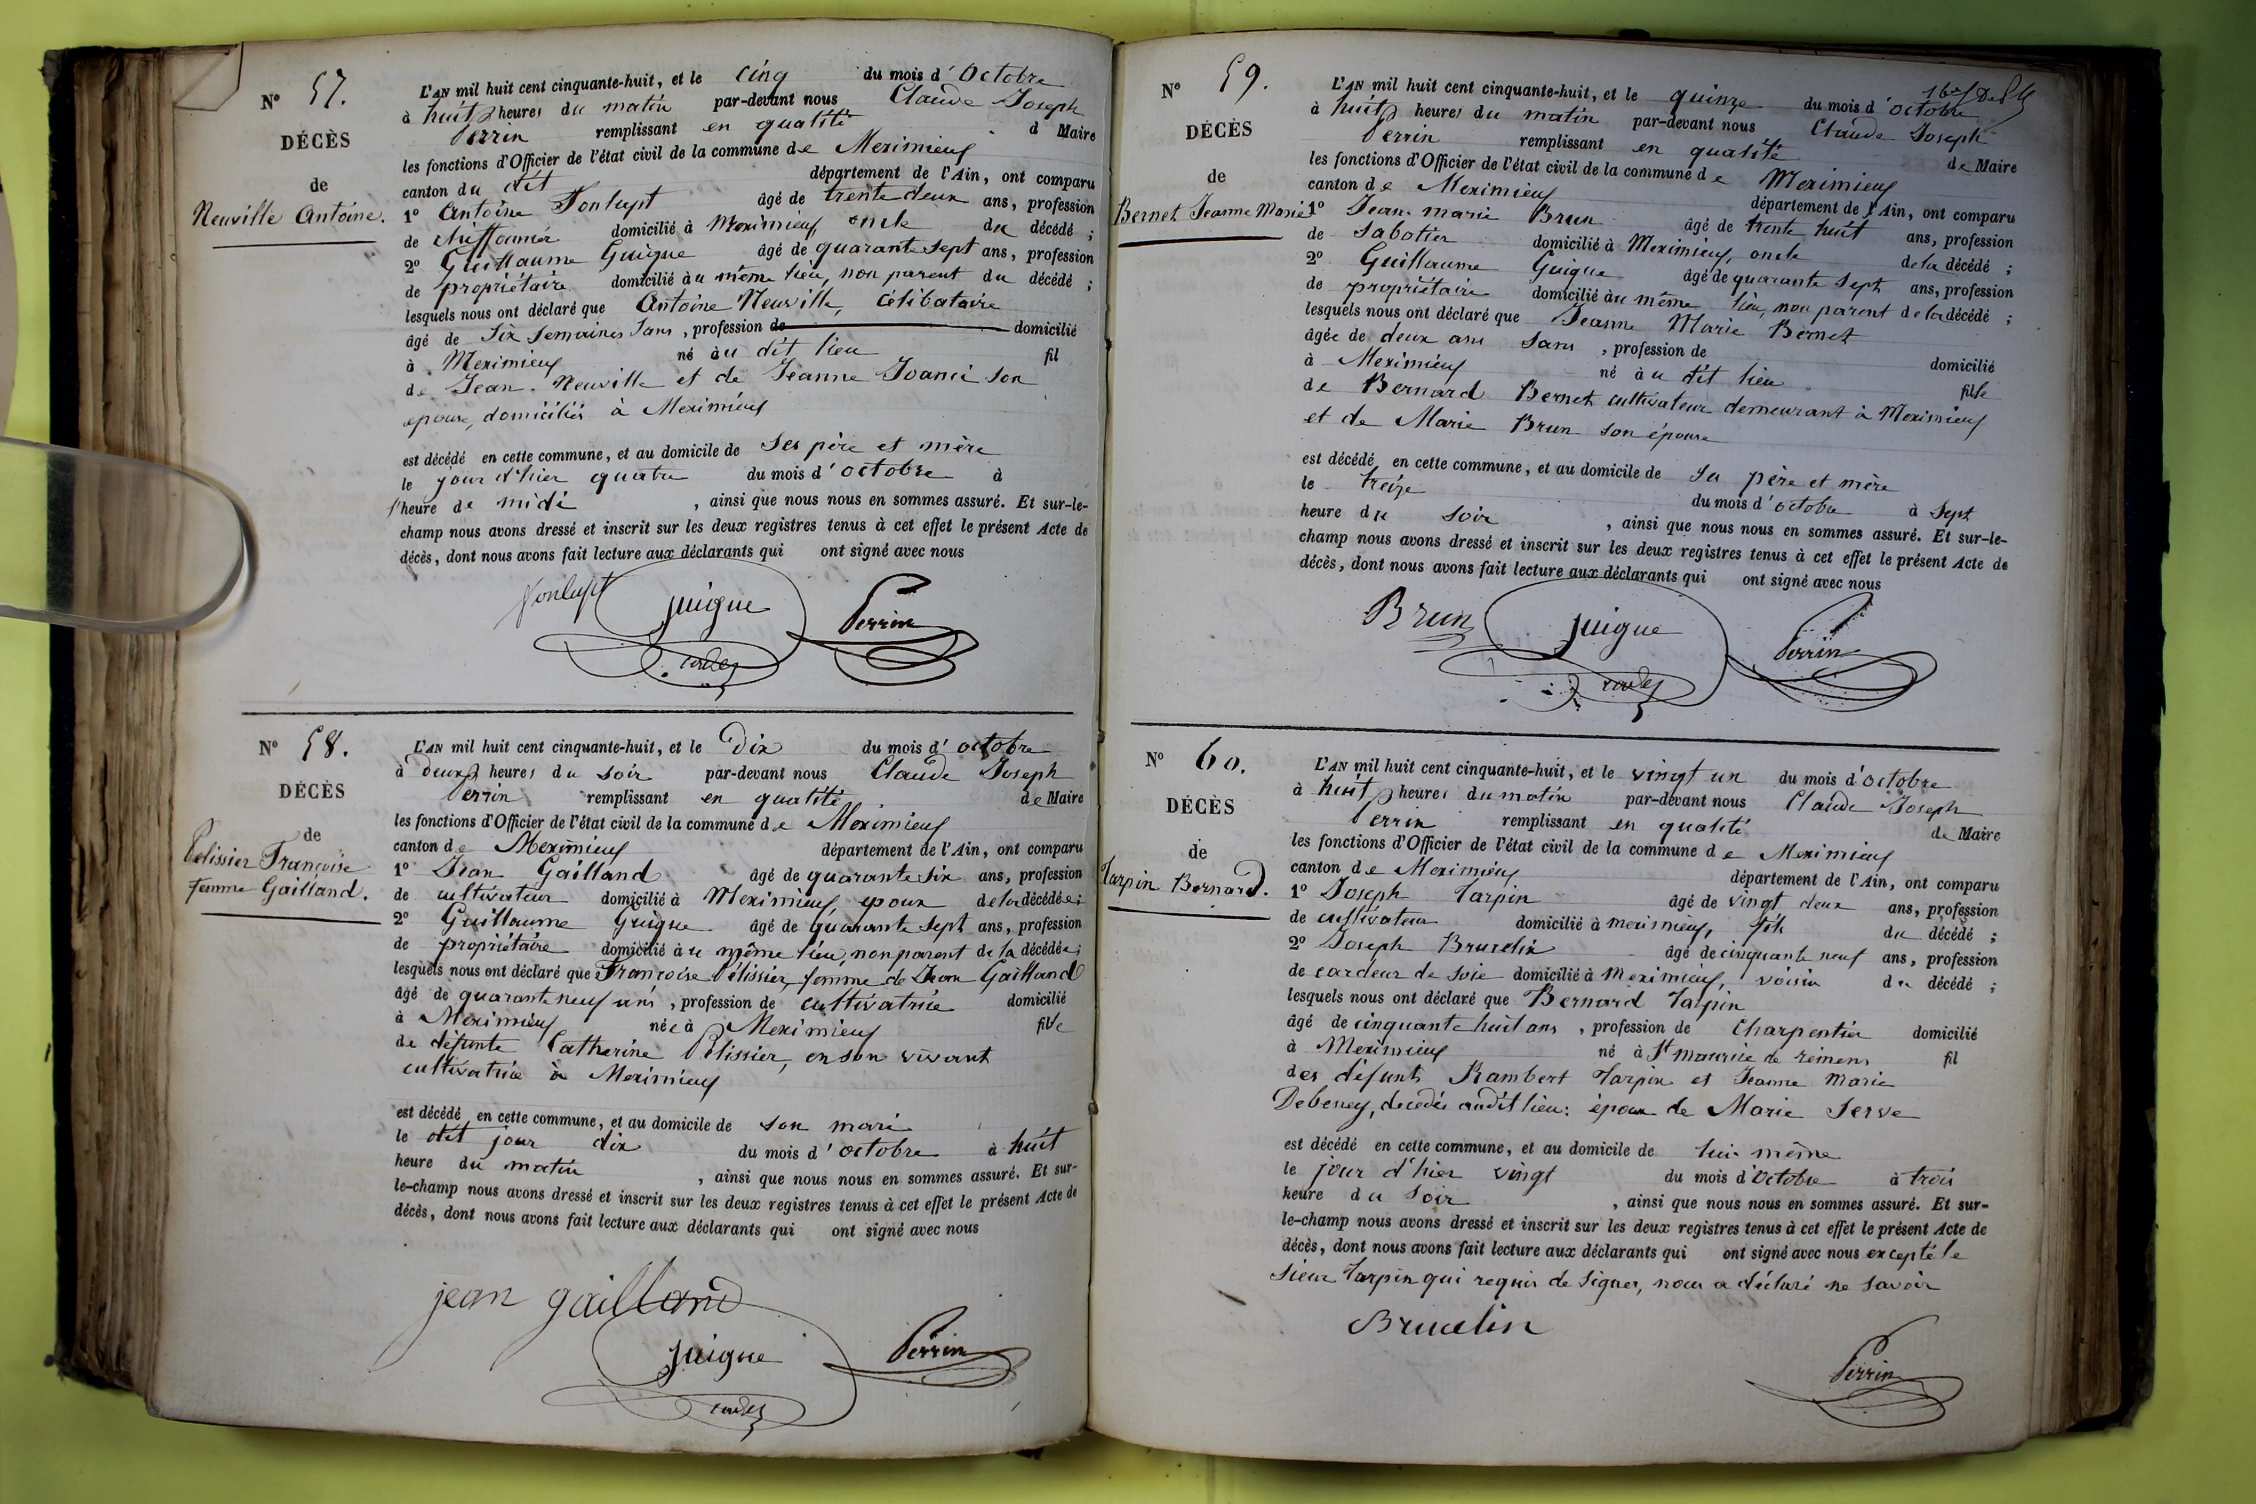 N° 57.
DÉCÈS
de
Neuville Antoine.
L'AN mil huit cent cinquante-huit, et le cinq du mois d'Octobre
à huit heures du matin par-devant nous Claude Joseph
Perrin remplissant en qualité d Maire
les fonctions d'Officier de l'état civil de la commune de Meximieux
canton du dit département de l'Ain, ont comparu
1° Antoine Fonlupt âgé de trente deux ans, profession
de chiffonnier domicilié à Meximieux oncle du décédé ;
2° Guillaume Guigue âgé de quarante sept ans, profession
de propriétaire domicilié au même lieu, non parent du décédé ;
lesquels nous ont déclaré que Antoine Neuville, célibataire
âgé de Six Semaines Sans, profession de domicilié
à Meximieux né au dit lieu fil
de Jean Neuville et de Jeanne Joanni son
epouse, domiciliés à Meximieux
est décédé en cette commune, et au domicile de Ses père et mère
le jour d'hier quatre du mois d'octobre à
l'heure de midi , ainsi que nous nous en sommes assuré. Et sur-le-
champ nous avons dressé et inscrit sur les deux registres tenus à cet effet le présent Acte de
décès, dont nous avons fait lecture aux déclarants qui ont signé avec nous
Fonlupt Guigue Perrin
N° 58.
DÉCÈS
de
Pelissier Françoise
femme Gailland.
L'AN mil huit cent cinquante-huit, et le Dix du mois d'octobre
à deux heures du soir par-devant nous Claude Joseph
Perrin remplissant en qualité de Maire
les fonctions d'Officier de l'état civil de la commune de Meximieux
canton de Meximieux département de l'Ain, ont comparu
1° Jean Gailland âgé de quarante six ans, profession
de cultivateur domicilié à Meximieux, epoux de la décédée ;
2° Guillaume Guigue âgé de quarante sept ans, profession
de propriétaire domicilié au même lieu, non parent de la décédée ;
lesquels nous ont déclaré que Françoise Pélissier, femme de Jean Gailland
âgé de quarante neuf ans, profession de cultivatrice domicilié
à Meximieux née à Meximieux fille
de défunte Catherine Pélissier, en son vivant
cultivatrice à Meximieux
est décédé en cette commune, et au domicile de son mari
le dit jour dix du mois d'octobre à huit
heure du matin , ainsi que nous nous en sommes assuré. Et sur-
le-champ nous avons dressé et inscrit sur les deux registres tenus à cet effet le présent Acte de
décès, dont nous avons fait lecture aux déclarants qui ont signé avec nous
jean gailland
Guigue Perrin
N° 59.
DÉCÈS
de
Bernet Jeanne Marie
L'AN mil huit cent cinquante-huit, et le quinze du mois d'octobre
à huit heures du matin par-devant nous Claude Joseph
Perrin remplissant en qualité de Maire
les fonctions d'Officier de l'état civil de la commune de Meximieux
canton de Meximieux département de l'Ain, ont comparu
1° Jean-marie Brun âgé de trente huit ans, profession
de Sabotier domicilié à Meximieux, oncle de la décédé ;
2° Guillaume Guigue âgé de quarante sept ans, profession
de propriétaire domicilié au même lieu, non parent de la décédé ;
lesquels nous ont déclaré que Jeanne Marie Bernet
âgée de deux ans Sans , profession de domicilié
à Meximieux né au dit lieu fille
de Bernard Bernet cultivateur demeurant à Meximieux
et de Marie Brun son épouse
est décédé en cette commune, et au domicile de Sa père et mère
le treize du mois d'octobre à Sept
heure du soir , ainsi que nous nous en sommes assuré. Et sur-le-
champ nous avons dressé et inscrit sur les deux registres tenus à cet effet le présent Acte de
décès, dont nous avons fait lecture aux déclarants qui ont signé avec nous
Brun Guigue Perrin
N° 60.
DÉCÈS
de
Tarpin Bernard.
L'AN mil huit cent cinquante-huit, et le vingt un du mois d'octobre
à huit heures du matin par-devant nous Claude Joseph
Perrin remplissant en qualité de Maire
les fonctions d'Officier de l'état civil de la commune de Meximieux
canton de Meximieux département de l'Ain, ont comparu
1° Joseph Tarpin âgé de vingt deux ans, profession
de cultivateur domicilié à meximieux, fils du décédé ;
2° Joseph Bruxelin âgé de cinquante neuf ans, profession
de cardeur de soie domicilié à Meximieux, voisin du décédé ;
lesquels nous ont déclaré que Bernard Tarpin
âgé de cinquante huit ans , profession de Charpentier domicilié
à Meximieux né à St maurice de remens fil
des défunts Rambert Tarpin et Jeanne Marie
Debeney, décédés audit lieu : époux de Marie Serve
est décédé en cette commune, et au domicile de lui-même
le jour d'hier vingt du mois d'Octobre à trois
heure du Soir , ainsi que nous nous en sommes assuré. Et sur-
le-champ nous avons dressé et inscrit sur les deux registres tenus à cet effet le présent Acte de
décès, dont nous avons fait lecture aux déclarants qui ont signé avec nous excepté le
Sieur Tarpin qui requis de signer, nous a déclaré ne savoir
Perrin